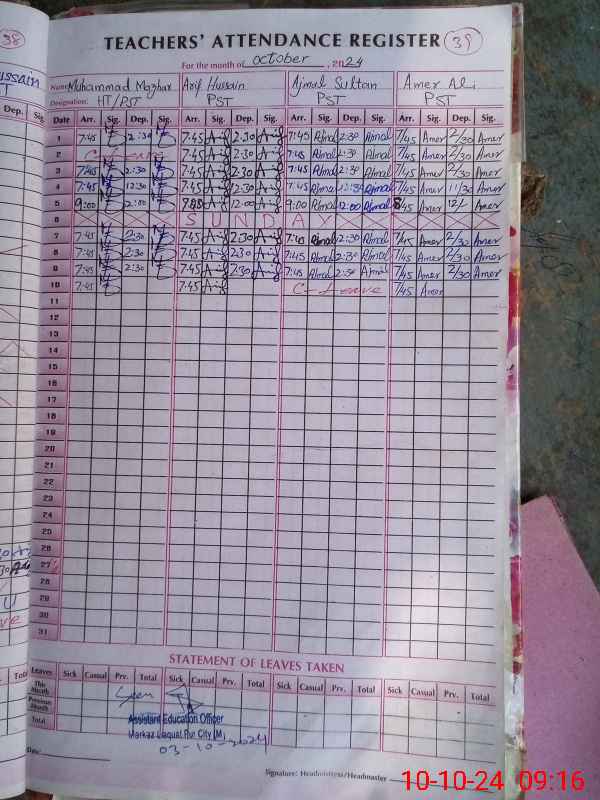 38
ussain
TEACHERS' ATTENDANCE REGISTER 39
For the month of October, 2024
Name: Muhammad Mazhar Arif Hussain Ajmal Sultan Amer Ali
Designation: HT/PST PST PST PST
Dep. Sig. Date Arr. Sig. Dep. Sig. Arr. Sig. Dep. Sig. Arr. Sig. Dep. Sig. Arr. Sig. Dep. Sig.
1 7:45 2:30 7:45 Arif 2:30 Arif 7:45 Ajmal 2:30 Ajmal 7/45 Amer 2/30 Amer
2 C-Leave 7:45 Arif 2:30 Arif 7:45 Ajmal 2:30 Ajmal 7/45 Amer 2/30 Amer
3 7:45 2:30 7:45 Arif 2:30 Arif 7:45 Ajmal 2:30 Ajmal 7/45 Amer 2/30 Amer
4 7:45 12:30 7:45 Arif 2:30 Arif 7:45 Ajmal 12:30 Ajmal 7/45 Amer 11/30 Amer
5 9:00 2:00 Arif 12:00 Arif 9:00 Ajmal 12:00 Ajmal 8/45 Amer 12/ Amer
6 SUNDAY
7 7:45 2:30 7:45 Arif 2:30 Arif 7:45 Ajmal 2:30 Ajmal 7/45 Amer 2/30 Amer
8 7:45 2:30 7:45 Arif 2:30 Arif 7:45 Ajmal 2:30 Ajmal 7/45 Amer 2/30 Amer
9 7:45 2:30 7:45 Arif 2:30 Arif 7:45 Ajmal 2:30 Ajmal 7/45 Amer 2/30 Amer
10 7:45 7:45 Arif C-Leave 7/45 Amer
11
12
13
14
15
16
17
18
19
20
21
22
23
24
25
26
27
28
29
30
31
STATEMENT OF LEAVES TAKEN
Leaves Sick Casual Prv. Total Sick Casual Prv. Total Sick Casual Prv. Total Sick Casual Prv. Total
This Month
Previous Month
Total
Seen
Assistant Education Officer
Markaz Liaquat Pur City (M)
03-10-2024
Date:
Signature: Headmistress/Headmaster
10-10-24 09:16